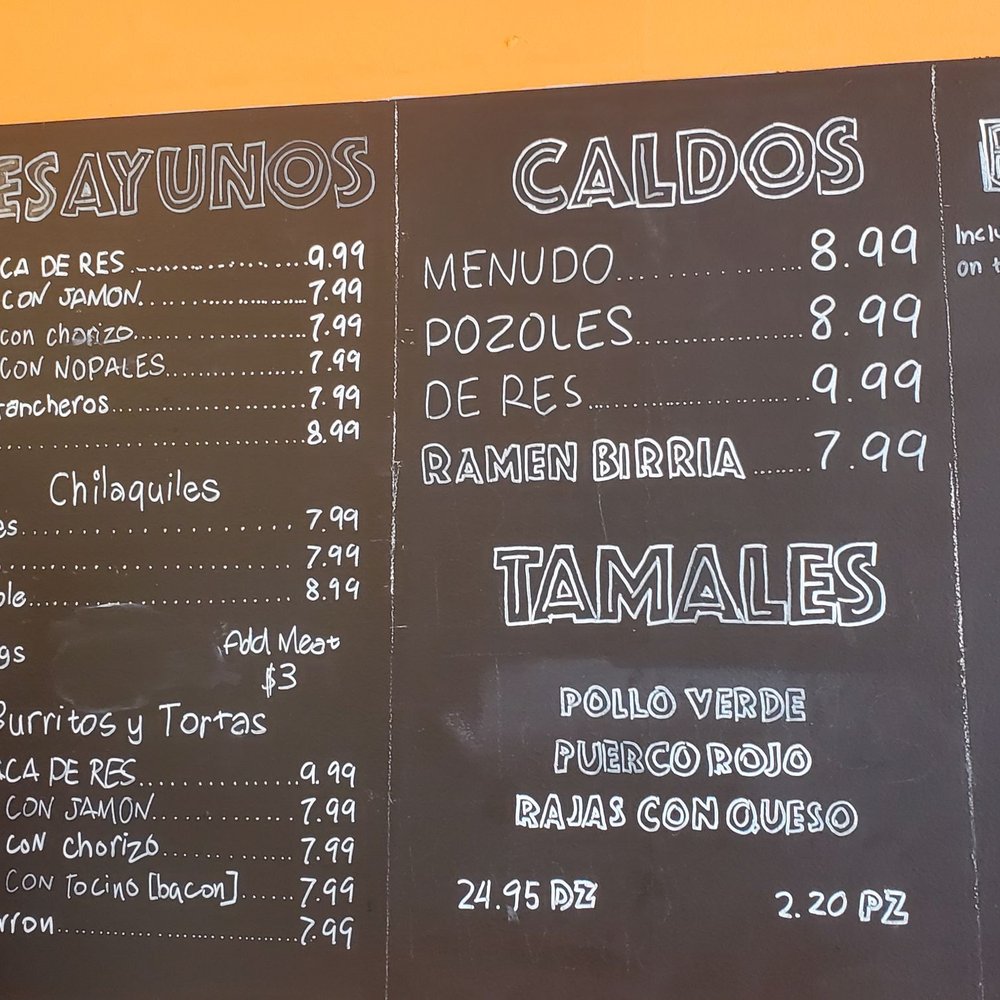 ESAYUNOS
CA DE RES 9.99
CON JAMON 7.99
con chorizo 7.99
CON NOPALES 7.99
rancheros 7.99
8.99
Chilaquiles
es 7.99
7.99
ole 8.99
gs
Add Meat
$3
Burritos y Tortas
CA DE RES 9.99
CON JAMON 7.99
CON chorizo 7.99
CON Tocino [bacon] 7.99
rron 7.99
CALDOS
MENUDO 8.99
POZOLES 8.99
DE RES 9.99
RAMEN BIRRIA 7.99
TAMALES
POLLO VERDE
PUERCO ROJO
RAJAS CON QUESO
24.95 DZ 2.20 PZ
Inclu
on t